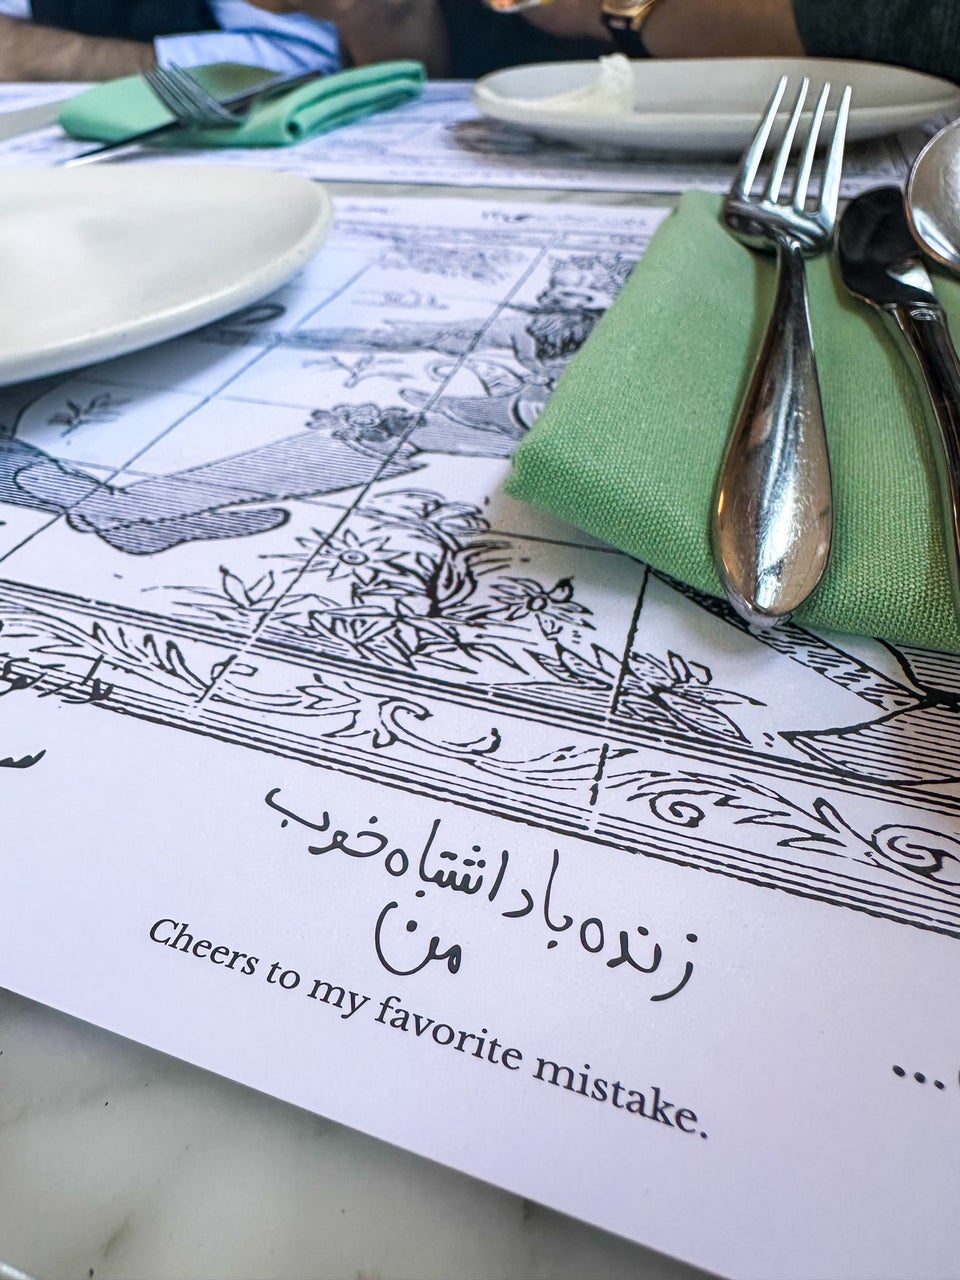 زنده باد اشتباه خوب
من
Cheers to my favorite mistake.
...